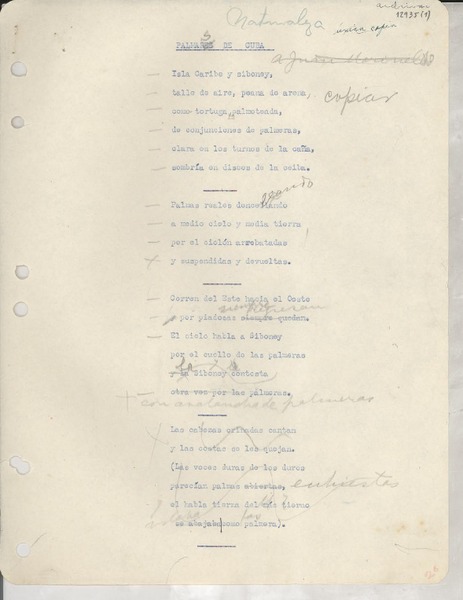 archivar
12935(1)
Naturaleza
única copia
PALMARES DE CUBA
A Juan
Isla Caribe y siboney,
tallo de aire, peana de arena,
copiar
como tortuga palmoteada,
de conjunciones de palmeras,
clara en los turnos de la caña,
sombría en discos de la ceiba.
Palmas reales doncelleando
a medio cielo y media tierra
por el ciclón arrebatadas
y suspendidas y devueltas.
Corren del Este hacia el Oeste
siempre regresan
por piadosas siempre quedan.
El cielo habla a Siboney
por el cuello de las palmeras
y la Siboney contesta
otra vez por las palmeras.
con avalancha de palmeras
Las cabezas crinadas cantan
y las costas se les quejan.
(Las voces duras de los duros
parecían palmas abiertas, enhiestas
el habla tierna del más tierno
se abajaba como palmera).